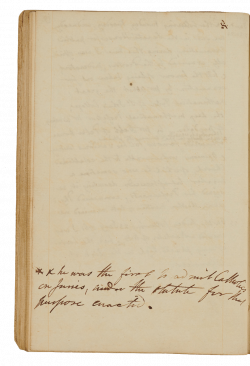 * x he was the first to admit Catholics
on Juries, under the statute for the
purpose enacted.